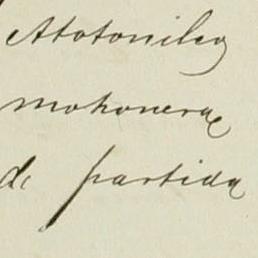 Atotonilco
mohonera
de partida